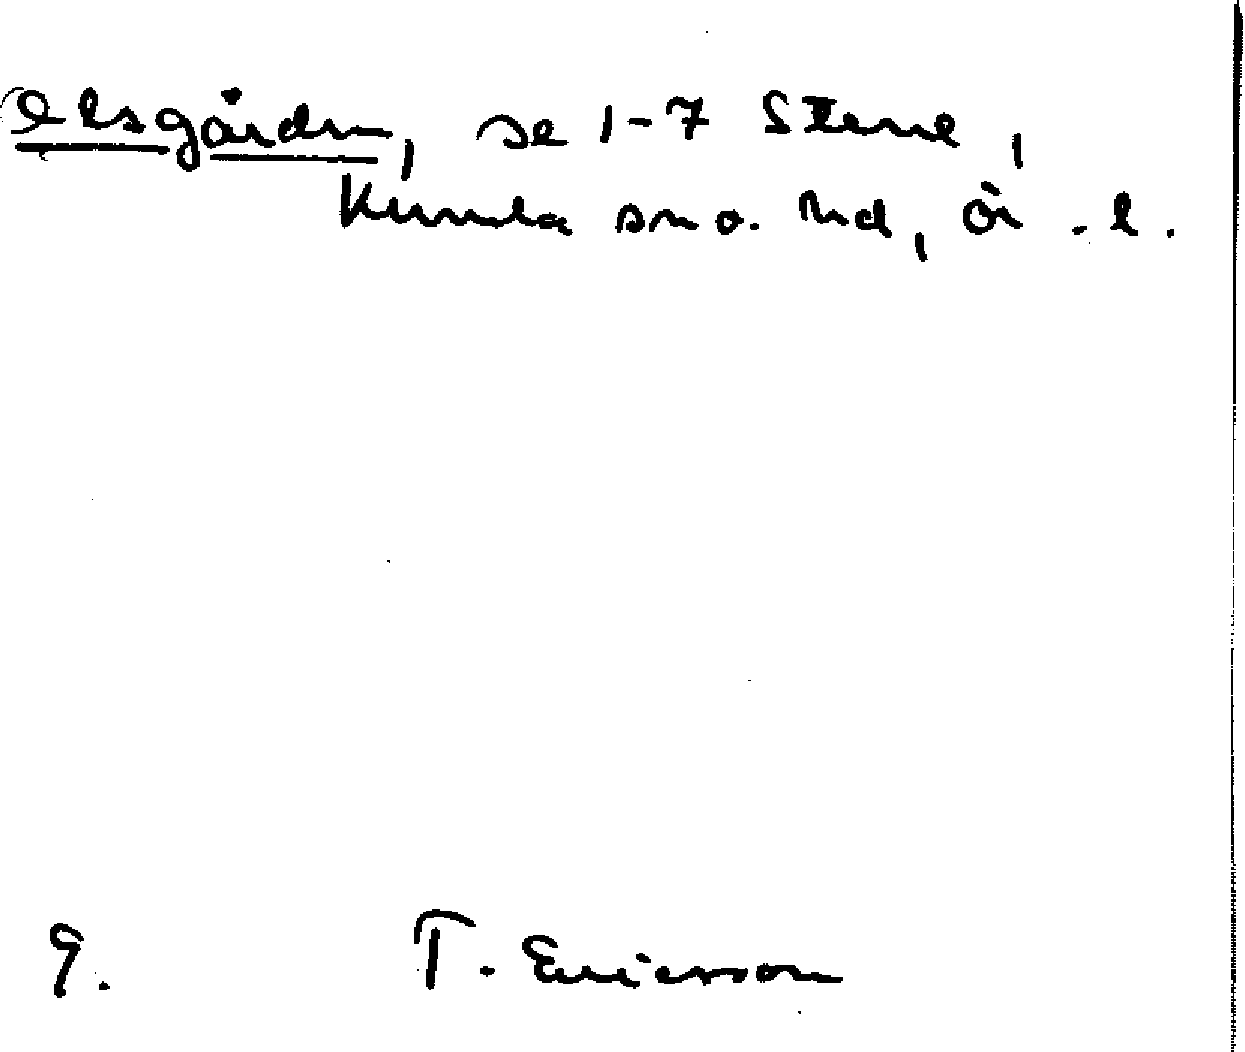 Olsgården, se 1-7 Stene,
Kumla sn o. hd, Ör. l.
9. T. Ericsson